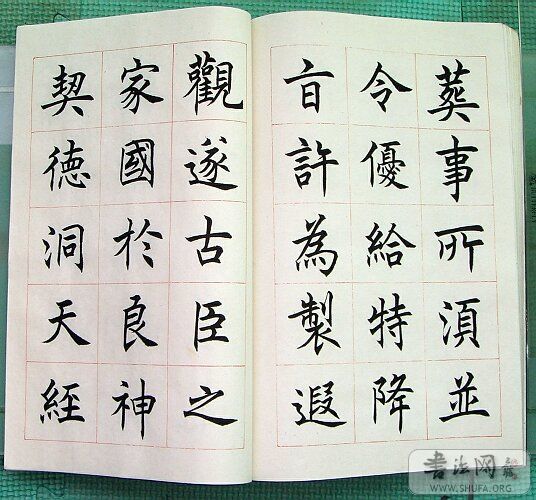 葬事所須並
令優給特降
㫖許為製遐
觀遂古臣之
家國於良神
契德洞天經
書法网
WWW.SHUFA.ORG